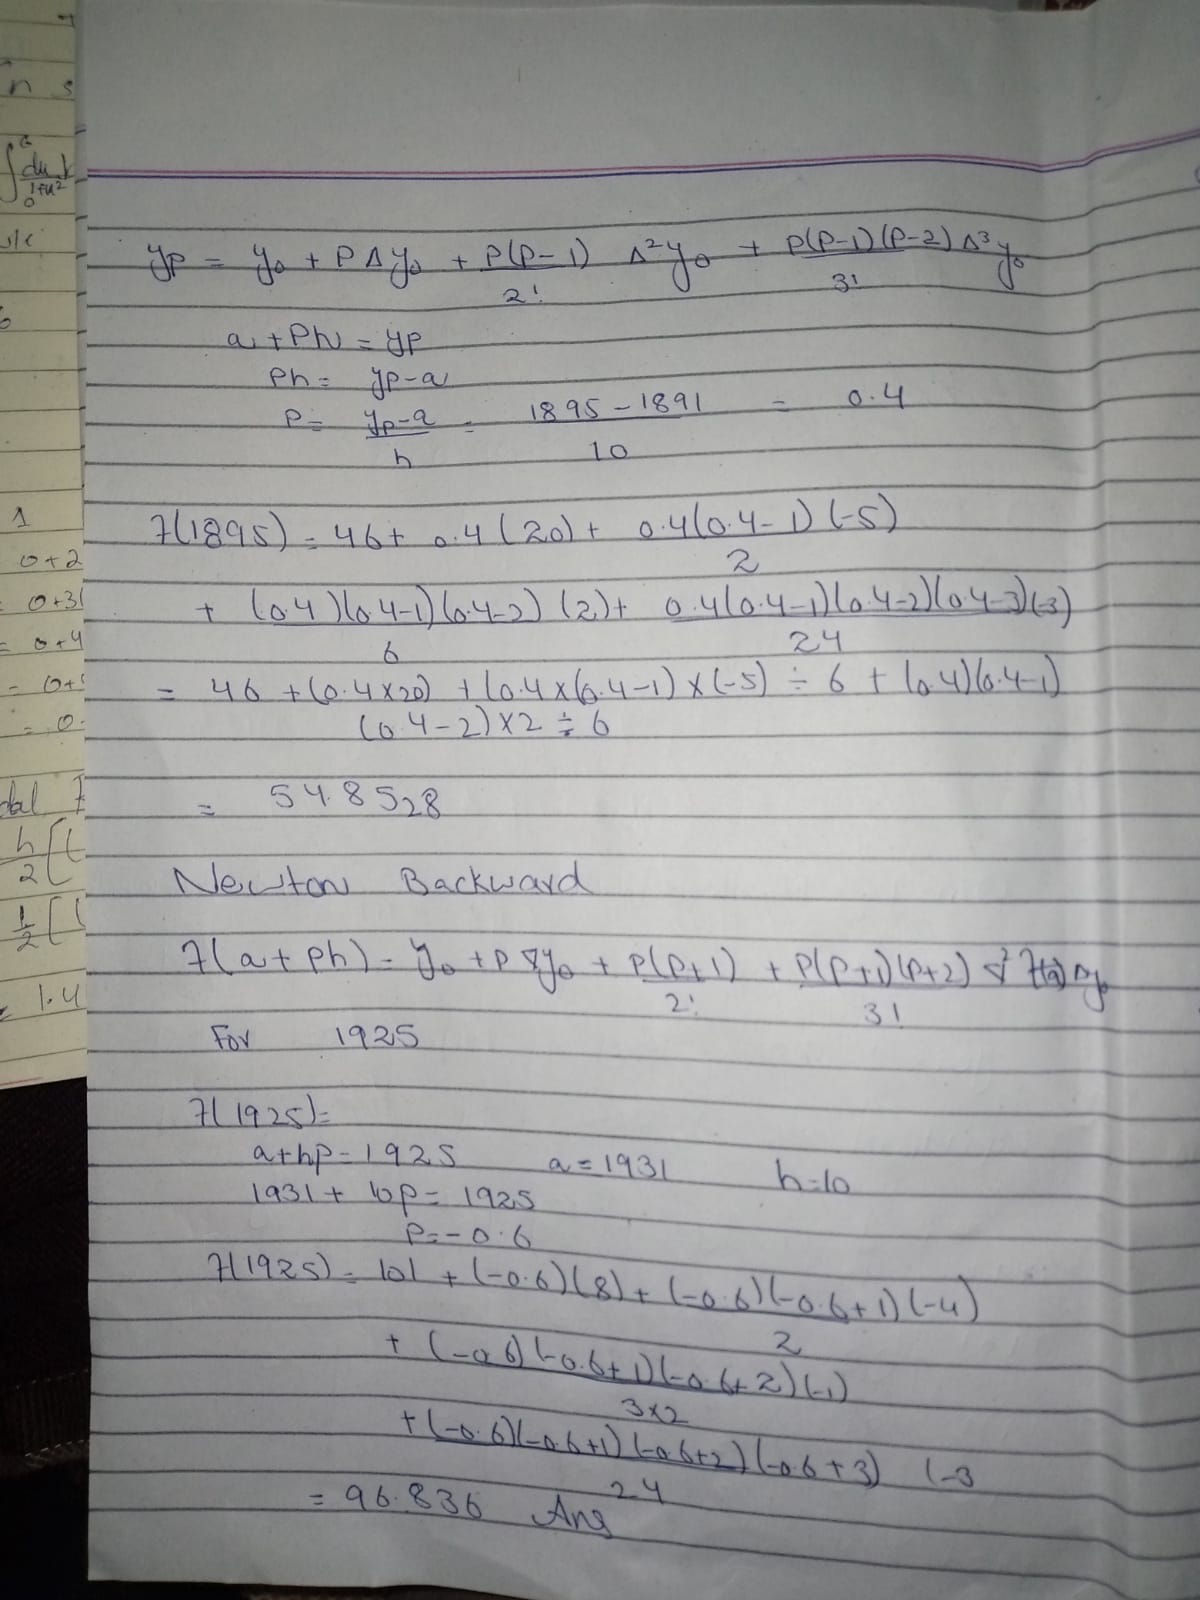 n s
∫ du
1+u²
0
yp = y₀ + PΔy₀ + P(P-1) Δ²y₀ + P(P-1)(P-2) Δ³y₀
2! 3!
a + Ph = yp
Ph = yp-a
P = yp-a = 1895-1891 = 0.4
h 10
1
0+2
0+3(
= 0+4
= 0+
= 0.
f(1895) = 46+ 0.4(20)+ 0.4(0.4-1)(-5)
2
+ (0.4)(0.4-1)(0.4-2)(2)+ 0.4(0.4-1)(0.4-2)(0.4-3)(-3)
6 24
= 46 +(0.4×20) +(0.4×(0.4-1)×(-5) ÷ 6 + (0.4)(0.4-1)
(0.4-2)×2 ÷ 6
= 54.8528
dal
h [(
2
1 [(
2
= 1.4
Newton Backward
f(a+ph) = y₀ +P∇y₀ + P(P+1) + P(P+1)(P+2)
2! 3!
For 1925
f(1925)=
a+hp=1925 a=1931 h=10
1931+ 10p= 1925
P=-0.6
f(1925)= 101 +(-0.6)(8)+ (-0.6)(-0.6+1)(-4)
2
+ (-0.6)(-0.6+1)(-0.6+2)(-1)
3×2
+(-0.6)(-0.6+1)(-0.6+2)(-0.6+3) (-3
24
= 96.836 Ans